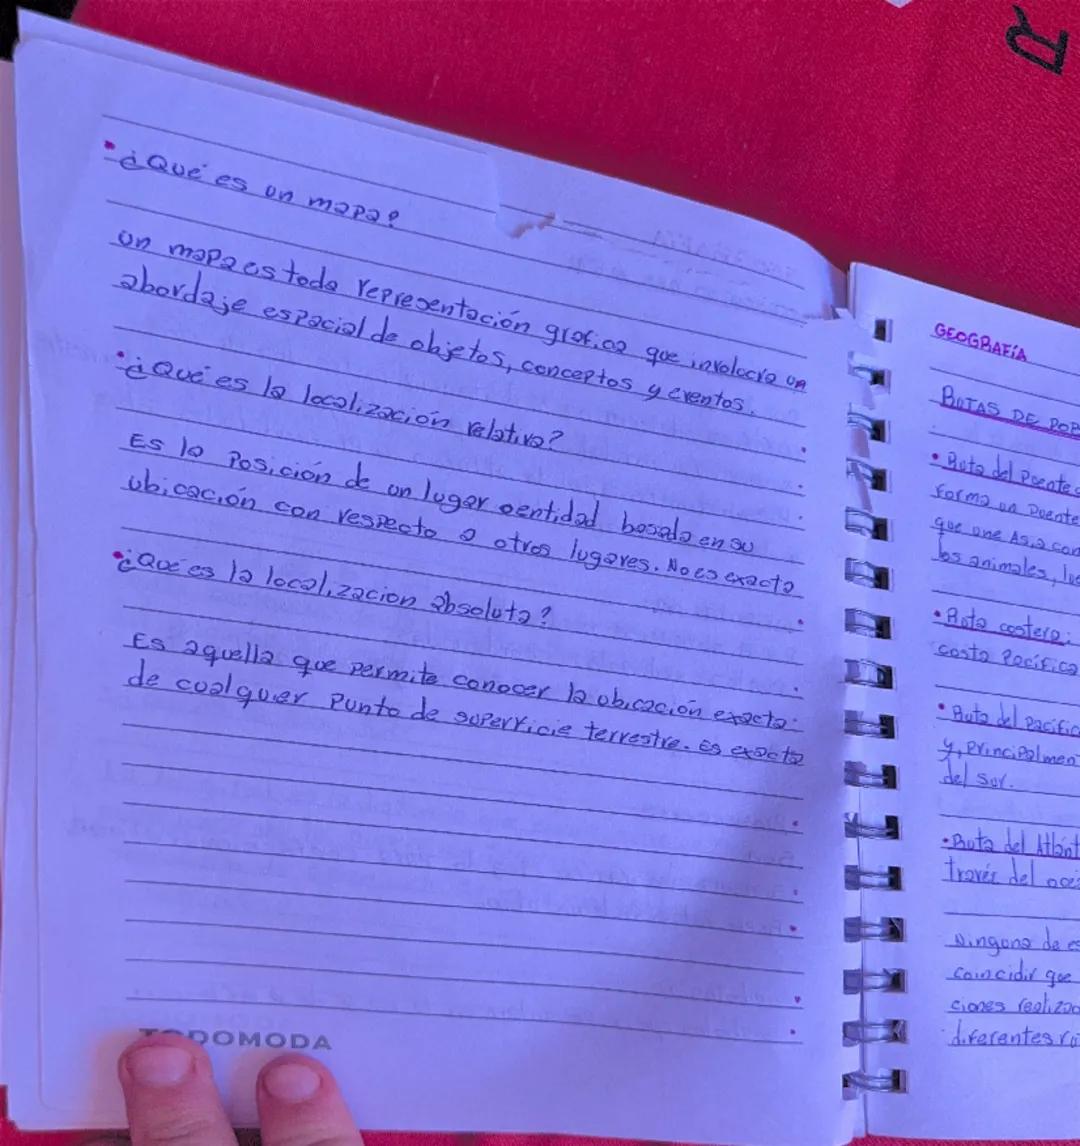 • ¿Qué es un mapa?
un mapa es toda representación grafica que involucra un
abordaje espacial de objetos, conceptos y eventos.
• ¿Qué es la localización relativa?
Es la Posición de un lugar o entidad basada en su
ubicación con respecto a otros lugares. No es exacta
• ¿Qué es la localizacion absoluta?
Es aquella que permite conocer la ubicación exacta
de cualquier punto de superficie terrestre. Es exacta
TODOMODA
GEOGRAFÍA
RUTAS DE POB
• Ruta del Puente
forma un Puente
que une Asia con
los animales, lu
• Ruta costera:
costa Pacífica
• Ruta del Pacific
y, principalmen
del sur.
• Ruta del Atlánt
través del oce
Ninguna de es
coincidir que
ciones realizad
diferentes ru
R